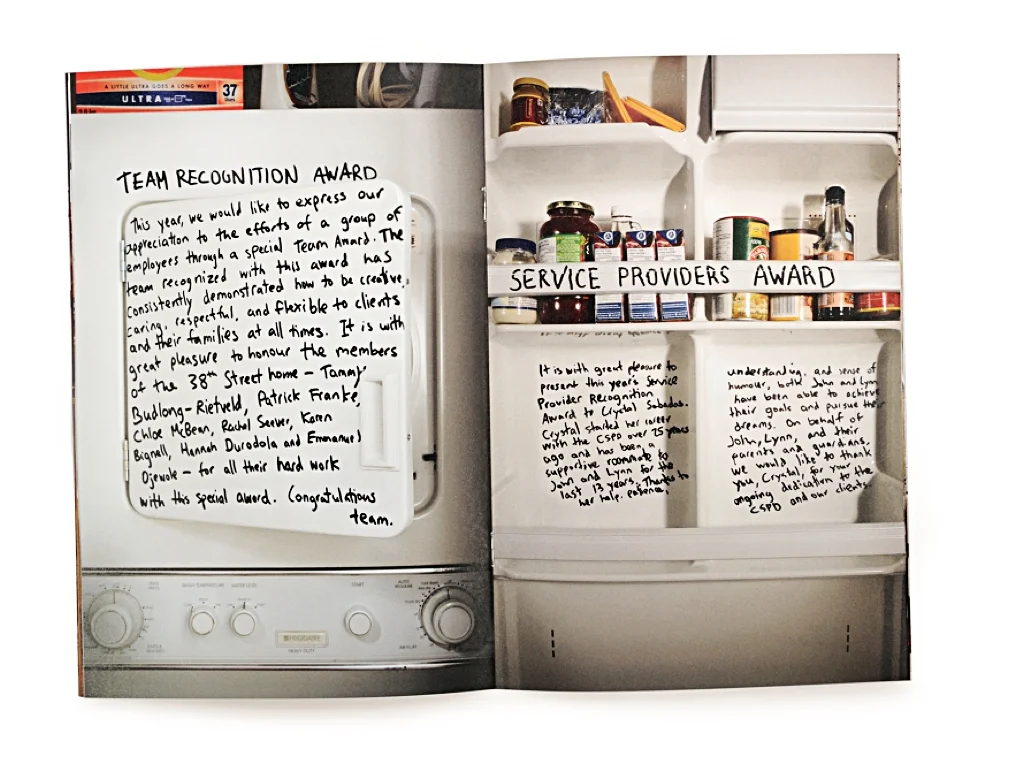 A LITTLE ULTRA GOES A LONG WAY
ULTRA
37
TEAM RECOGNITION AWARD
This year, we would like to express our
appreciation to the efforts of a group of
employees through a special Team Award. The
team recognized with this award has
consistently demonstrated how to be creative,
caring, respectful, and flexible to clients
and their families at all times. It is with
great pleasure to honour the members
of the 38th Street home – Tammy
Budlong-Rietveld, Patrick Franke,
Chloe McBean, Rachel Seever, Karen
Bignall, Hannah Durodola and Emmanuel
Ojewole – for all their hard work
with this special award. Congratulations
team.
START
FRIGIDAIRE
HEAVY DUTY
SERVICE PROVIDERS AWARD
It is with great pleasure to
present this year's Service
Provider Recognition
Award to Crystal Sabadas.
Crystal started her career
with the CSPD over 25 years
ago and has been a
supportive roommate to
John and Lynn for the
last 13 years. Thanks to
her help, patience,
understanding, and sense of
humour, both John and Lynn
have been able to achieve
their goals and pursue their
dreams. On behalf of
John, Lynn, and their
parents and guardians,
we would like to thank
you, Crystal, for your
ongoing dedication to the
CSPD and our clients.